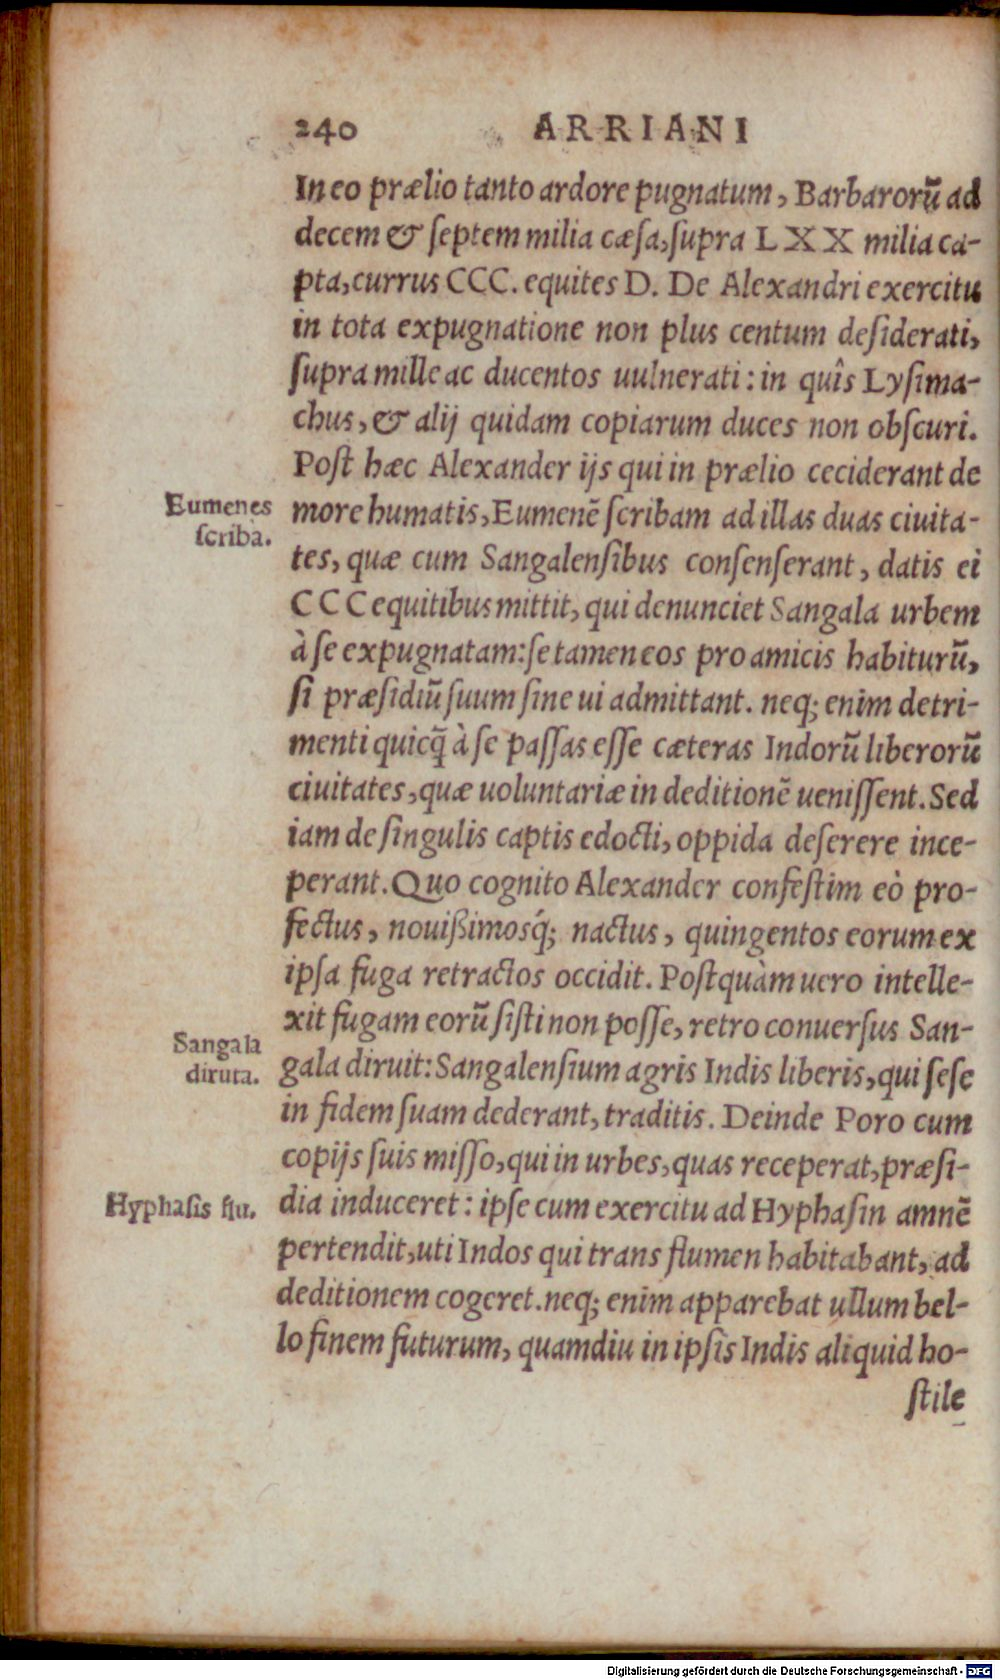 240 ARRIANI
In eo prælio tanto ardore pugnatum, Barbarorũ ad
decem & ſeptem milia cæſa, ſupra LXX milia ca-
pta, currus CCC. equites D. De Alexandri exercitu
in tota expugnatione non plus centum deſiderati,
ſupra mille ac ducentos uulnerati: in quîs Lyſima-
chus, & alij quidam copiarum duces non obſcuri.
Poſt hæc Alexander ijs qui in prælio ceciderant de
Eumenes
ſcriba.
more humatis, Eumenẽ ſcribam ad illas duas ciuita-
tes, quæ cum Sangalenſibus conſenſerant, datis ei
CCC equitibus mittit, qui denunciet Sangala urbem
à ſe expugnatam: ſe tamen eos pro amicis habiturũ,
ſi præſidiũ ſuum ſine ui admittant. neq; enim detri-
menti quicq̃ à ſe paſſas eſſe cæteras Indorũ liberorũ
ciuitates, quæ uoluntariæ in deditionẽ ueniſſent. Sed
iam de ſingulis captis edocti, oppida deſerere ince-
perant. Quo cognito Alexander confeſtim eò pro-
fectus, nouißimosq́; nactus, quingentos eorum ex
ipſa fuga retractos occidit. Poſtquàm uero intelle-
xit fugam eorũ ſiſti non poſſe, retro conuerſus San-
Sangala
diruta.
gala diruit: Sangalenſium agris Indis liberis, qui ſeſe
in fidem ſuam dederant, traditis. Deinde Poro cum
copijs ſuis miſſo, qui in urbes, quas receperat, præſi-
Hyphaſis flu.
dia induceret: ipſe cum exercitu ad Hyphaſin amnẽ
pertendit, uti Indos qui trans flumen habitabant, ad
deditionem cogeret. neq; enim apparebat ullum bel-
lo finem futurum, quamdiu in ipſis Indis aliquid ho-
ſtile
Digitalisierung gefördert durch die Deutsche Forschungsgemeinschaft - DFG